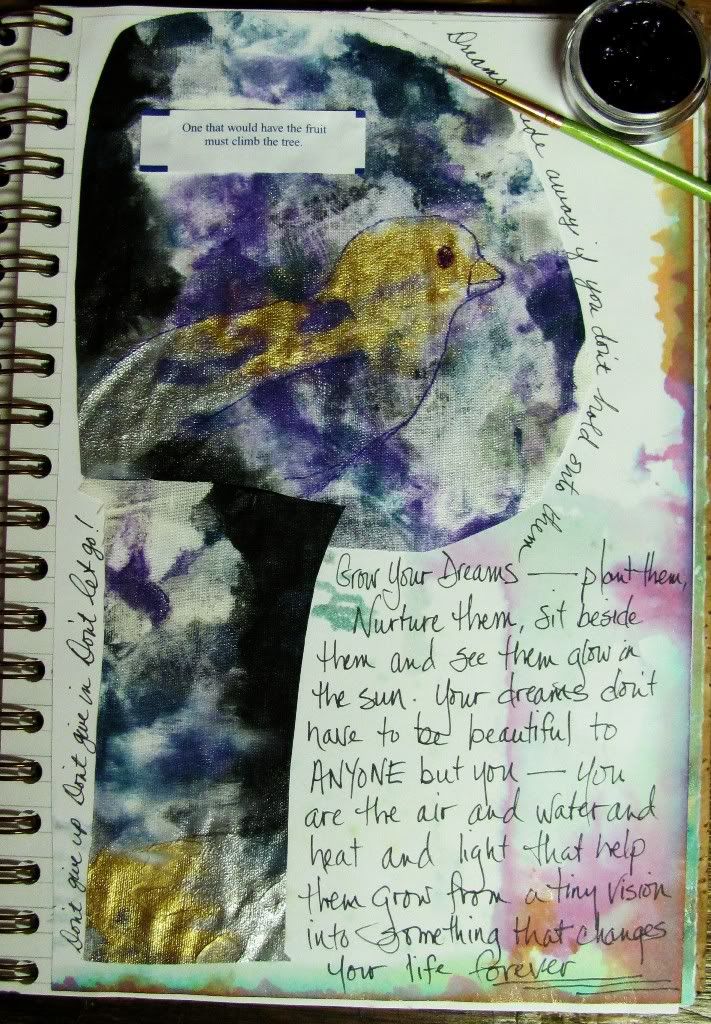 One that would have the fruit
must climb the tree.
Dreams away if you don't hold onto them
Don't give up Don't give in Don't let go!
Grow Your Dreams — plant them,
Nurture them, sit beside
them and see them glow in
the sun. Your dreams don't
have to be beautiful to
ANYONE but you — You
are the air and water and
heat and light that help
them grow from a tiny vision
into something that changes
your life forever